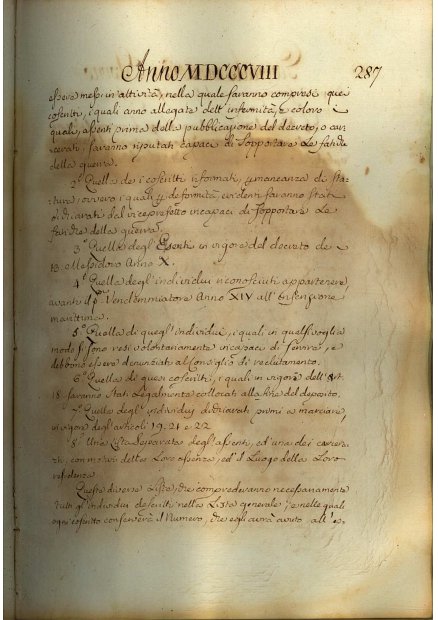 Anno MDCCCVIII 287
essere messi in attività, nella quale saranno compresi quei
coscritti, i quali anno allegate dell'infermità, e coloro i
quali, assenti prima della pubblicazione del decreto, o car-
cerati, saranno riputati capaci di sopportare le fatiche
della guerra.
2.° Quella de i coscritti riformati, p mancanza di sta-
tura, ovvero i quali p deformità evidenti saranno stati
dichiarati dal viceprefetto incapaci di sopportare le
fatiche della guerra.
3.° Quella degl'Esenti in vigore del decreto de
18 Messidoro Anno X.
4.° Quella degl'individui riconosciuti appartenere
avanti il p.° Vendemmiatore Anno XIV all'Inscrizione
marittima.
5.° Quella di quegl'individui, i quali in qualsivoglia
modo si sono resi volontariamente incapaci di servire, e
debbono essere denunziati al Consiglio di reclutamento.
6.° Quella di quei coscritti, i quali in vigore dell'Art.
18. saranno stati legalmente collocati alla fine del deposito.
7.° Quella degl'individui dichiarati primi a marciare,
in vigore degl'articoli 19. 21 e 22
8.° Una Lista separata degl'assenti, ed una dei carcera-
ti, con motivi della Loro assenza, ed il Luogo della Loro
residenza.
Queste diverse Liste, che comprederanno necessariamente
tutti gl'individui descritti nella Lista generale, e nelle quali
ogni coscritto conserverà il Numero, che egli avrà avuto, all'e-